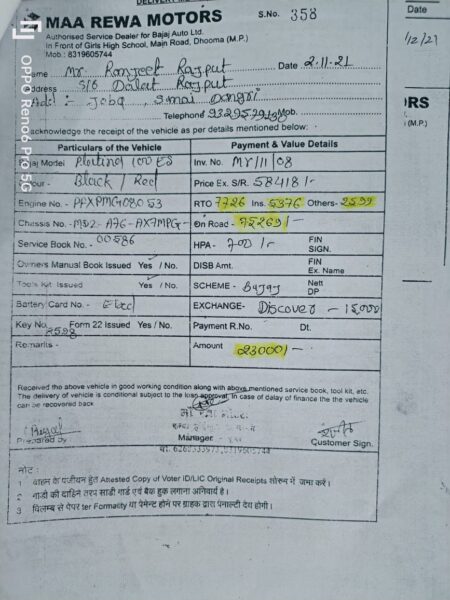 DELIVERY MEMO
MAA REWA MOTORS
S.No. 358
Authorised Service Dealer for Bajaj Auto Ltd.
In Front of Girls High School, Main Road, Dhooma (M.P.)
Mob.: 8319605744
Name Mr. Ranjeet Rajput Date 2.11.21
Address S/o Dalat Rajput
Add :- Joba, Dongri
Telephone Mob.
acknowledge the receipt of the vehicle as per details mentioned below:
Particulars of the Vehicle Payment & Value Details
Bajaj Model Platina 100 ES Inv. No. MY/11/08
Colour - Black / Red Price Ex. S/R. 58418/-
Engine No. - PFXPMG08053 RTO 7726 Ins. 5376 Others- 2599
Chassis No. - MD2-A76-AX7MPG- On Road - 75269/-
Service Book No. - 00586 HPA - 700/- FIN SIGN.
Owners Manual Book Issued Yes / No. DISB Amt. FIN Ex. Name
Tools Kit Issued Yes / No. SCHEME - Bajaj Nett DP
Battery Card No. - EXCHANGE- Discover - 15,000
Key No. 2598 Form 22 Issued Yes / No. Payment R.No. Dt.
Remarks - Amount 23000/-
Received the above vehicle in good working condition along with above mentioned service book, tool kit, etc.
The delivery of vehicle is conditional subject to the loan approval. In case of dalay of finance the the vehicle
can be recovered back
Prepared by Manager Customer Sign.
नोट :
1 वाहन के पंजीयन हेतु Attested Copy of Voter ID/LIC Original Receipts शोरुम में जमा करें।
2 गाडी की दाहिने तरफ साडी गार्ड एवं बैक हुक लगाना अनिवार्य है।
3 विलम्ब से पेपर ter Formality या पेमेन्ट होने पर ग्राहक द्वारा पेनाल्टी देय होगी।
Date
/12/21
ORS
(M.P.)
OPPO Reno6 Pro 5G